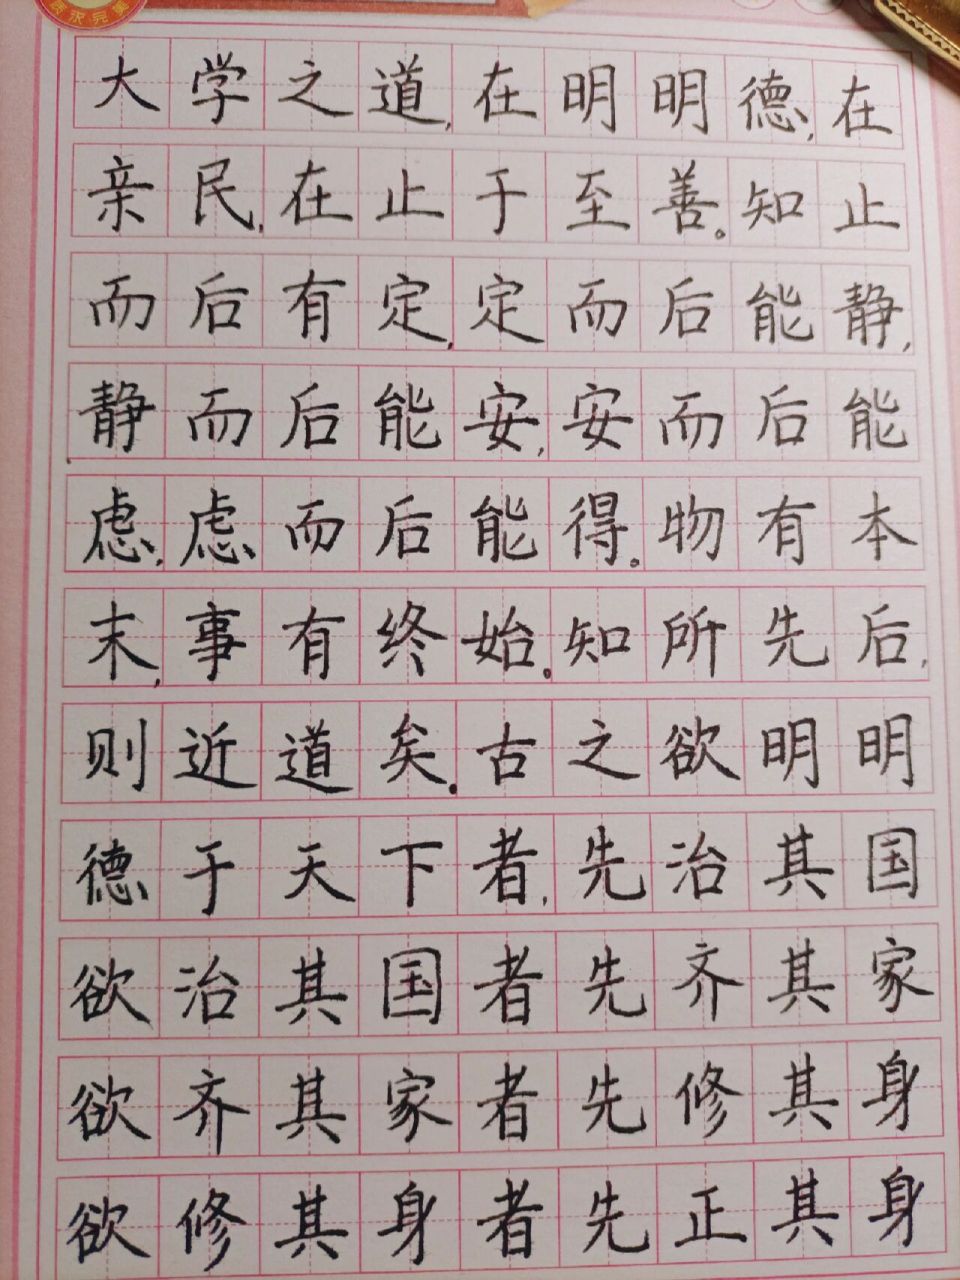 质永完美
大学之道,在明明德,在
亲民,在止于至善。知止
而后有定,定而后能静,
静而后能安,安而后能
虑,虑而后能得。物有本
末,事有终始。知所先后,
则近道矣。古之欲明明
德于天下者,先治其国
欲治其国者先齐其家
欲齐其家者先修其身
欲修其身者先正其身